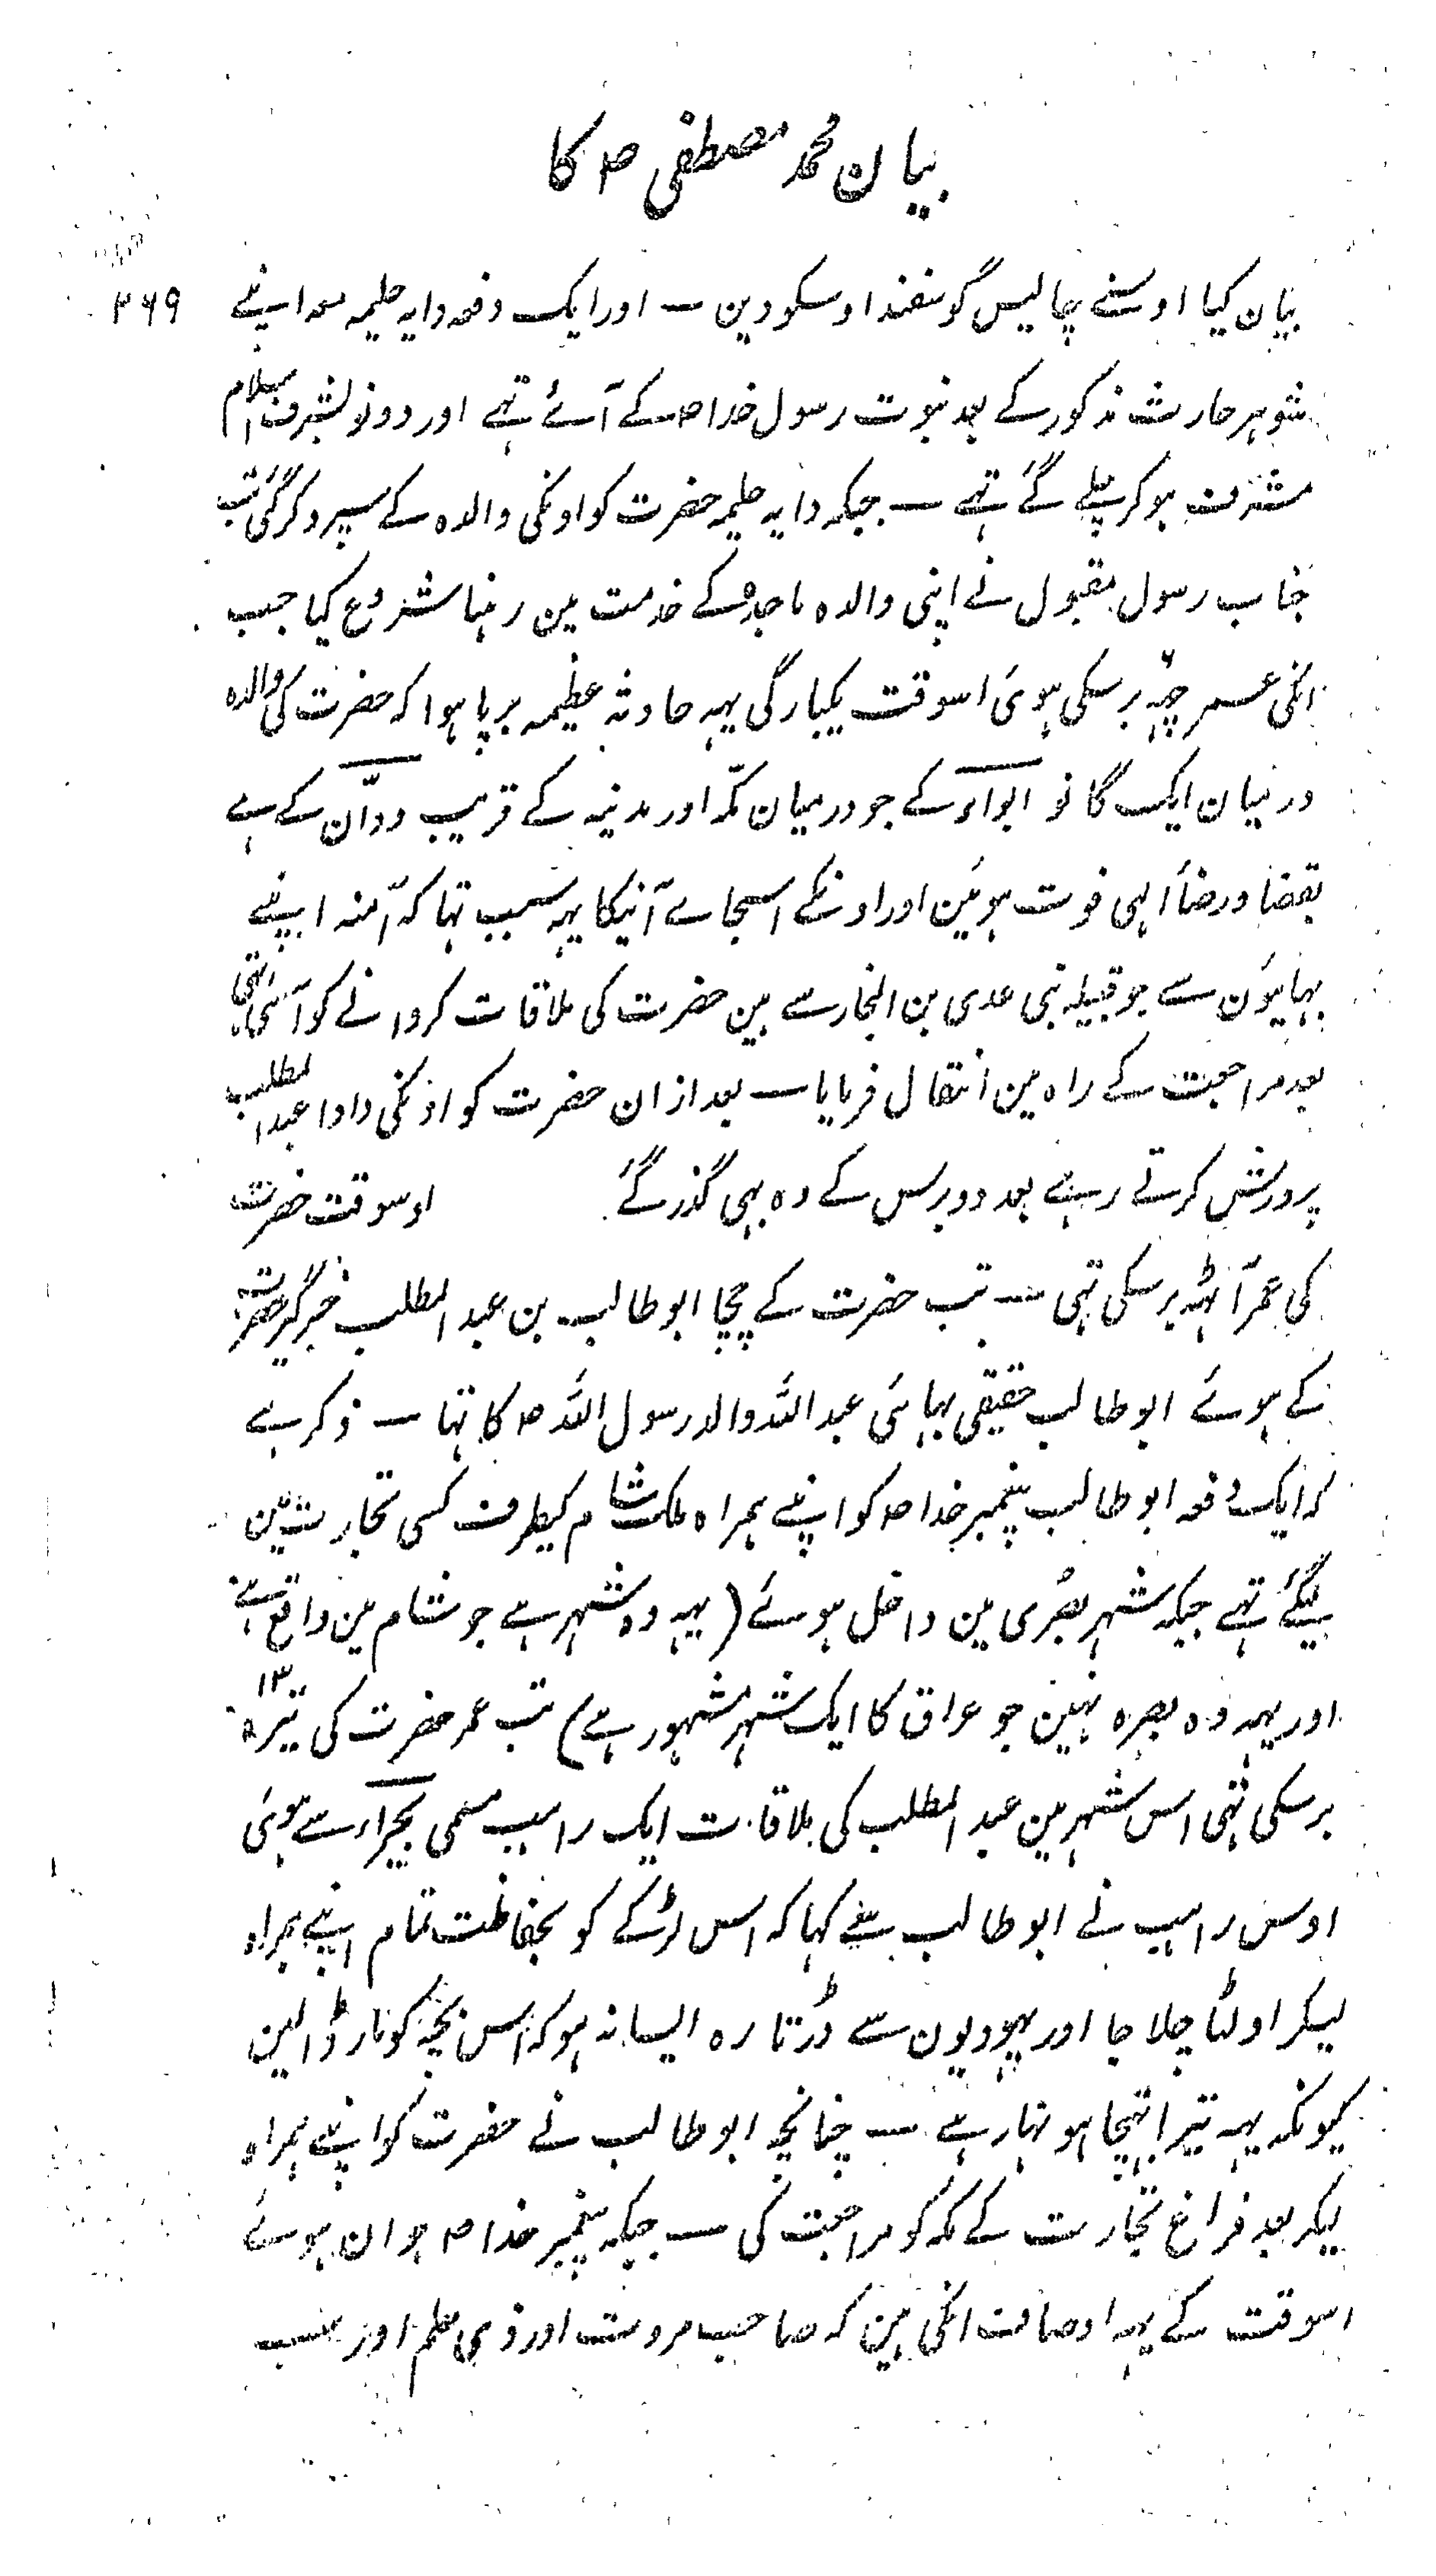 بیان محمد مصطفی ص کا
بیان کیا اوسنے چالیس گوسفند اوسکو دین ــ اور ایک دفعہ دایہ حلیمہ معہ اپنے ۳۶۹
شوہر حارث مذکور کے بعد نبوت رسول خدا ص کے آئے تہے اور دونو بشرف اسلام
مشرف ہو کر چلے گئے تہے ــ جبکہ دایہ حلیمہ حضرت کو اونکی والدہ کے سپرد کر گئی تب
جناب رسول مقبول نے اپنی والدہ ماجدہ کے خدمت مین رہنا شروع کیا جب
انکی عمر چہہ ۶ برسکی ہوئی اسوقت یکبارگی یہہ حادثہ عظیمہ برپا ہوا کہ حضرت کی والدہ
درمیان ایک گانو ابواء کے جو درمیان مکّہ اور مدینہ کے قریب ودّان کے ہے
بقضا و رضاء الہی فوت ہوئین اور اونکے اسجاے آنیکا یہہ سبب تہا کہ آمنہ اپنے
بہائیون سے جو قبیلہ بنی عدی بن النجار سے ہین حضرت کی ملاقات کروانے کو آئی تہی
بعد مراجعت کے راہ مین انتقال فرمایا ــ بعد ازان حضرت کو اونکی دادا عبد المطلب
پرورش کرتے رہے بعد دو برس کے وہ بہی گذر گئے اوسوقت حضرت
کی عمر آٹہہ برسکی تہی ــ تب حضرت کے چچا ابو طالب بن عبد المطلب خبرگیر حضرت
کے ہوئے ابو طالب حقیقی بہائی عبد اللہ والد رسول اللہ ص کا تہا ــ ذکر ہے
کہ ایک دفعہ ابو طالب پیغمبر خدا ص کو اپنے ہمراہ ملک شام کیطرف کسی تجارت مین
لیگئے تہے جبکہ شہر بصُری مین داخل ہوئے ( یہہ وہ شہر ہے جو شام مین واقع ہے
اور یہہ وہ بصرہ نہین جو عراق کا ایک شہر مشہور ہے) تب عمر حضرت کی تیرہ ۱۳
برسکی تہی اس شہر مین عبد المطلب کی ملاقات ایک راہب مسمی بحیراء سے ہوئی
اوس راہب نے ابو طالب سے کہا کہ اس لڑکے کو بحفاظت تمام اپنے ہمراہ
لیکر اولٹا چلا جا اور یہودیون سے ڈرتا رہ ایسا نہ ہو کہ اس بچہ کو مار ڈالین
کیونکہ یہہ تیرا بہتیجا ہونہار ہے ــ چنانچہ ابو طالب نے حضرت کو اپنے ہمراہ
لیکر بعد فراغ تجارت کے مکہ کو مراجعت کی ــ جبکہ پیغمبر خدا ص جوان ہوئے
اسوقت کے یہہ اوصاف انکی ہین کہ صاحب مروت اور ذی علم اور سب